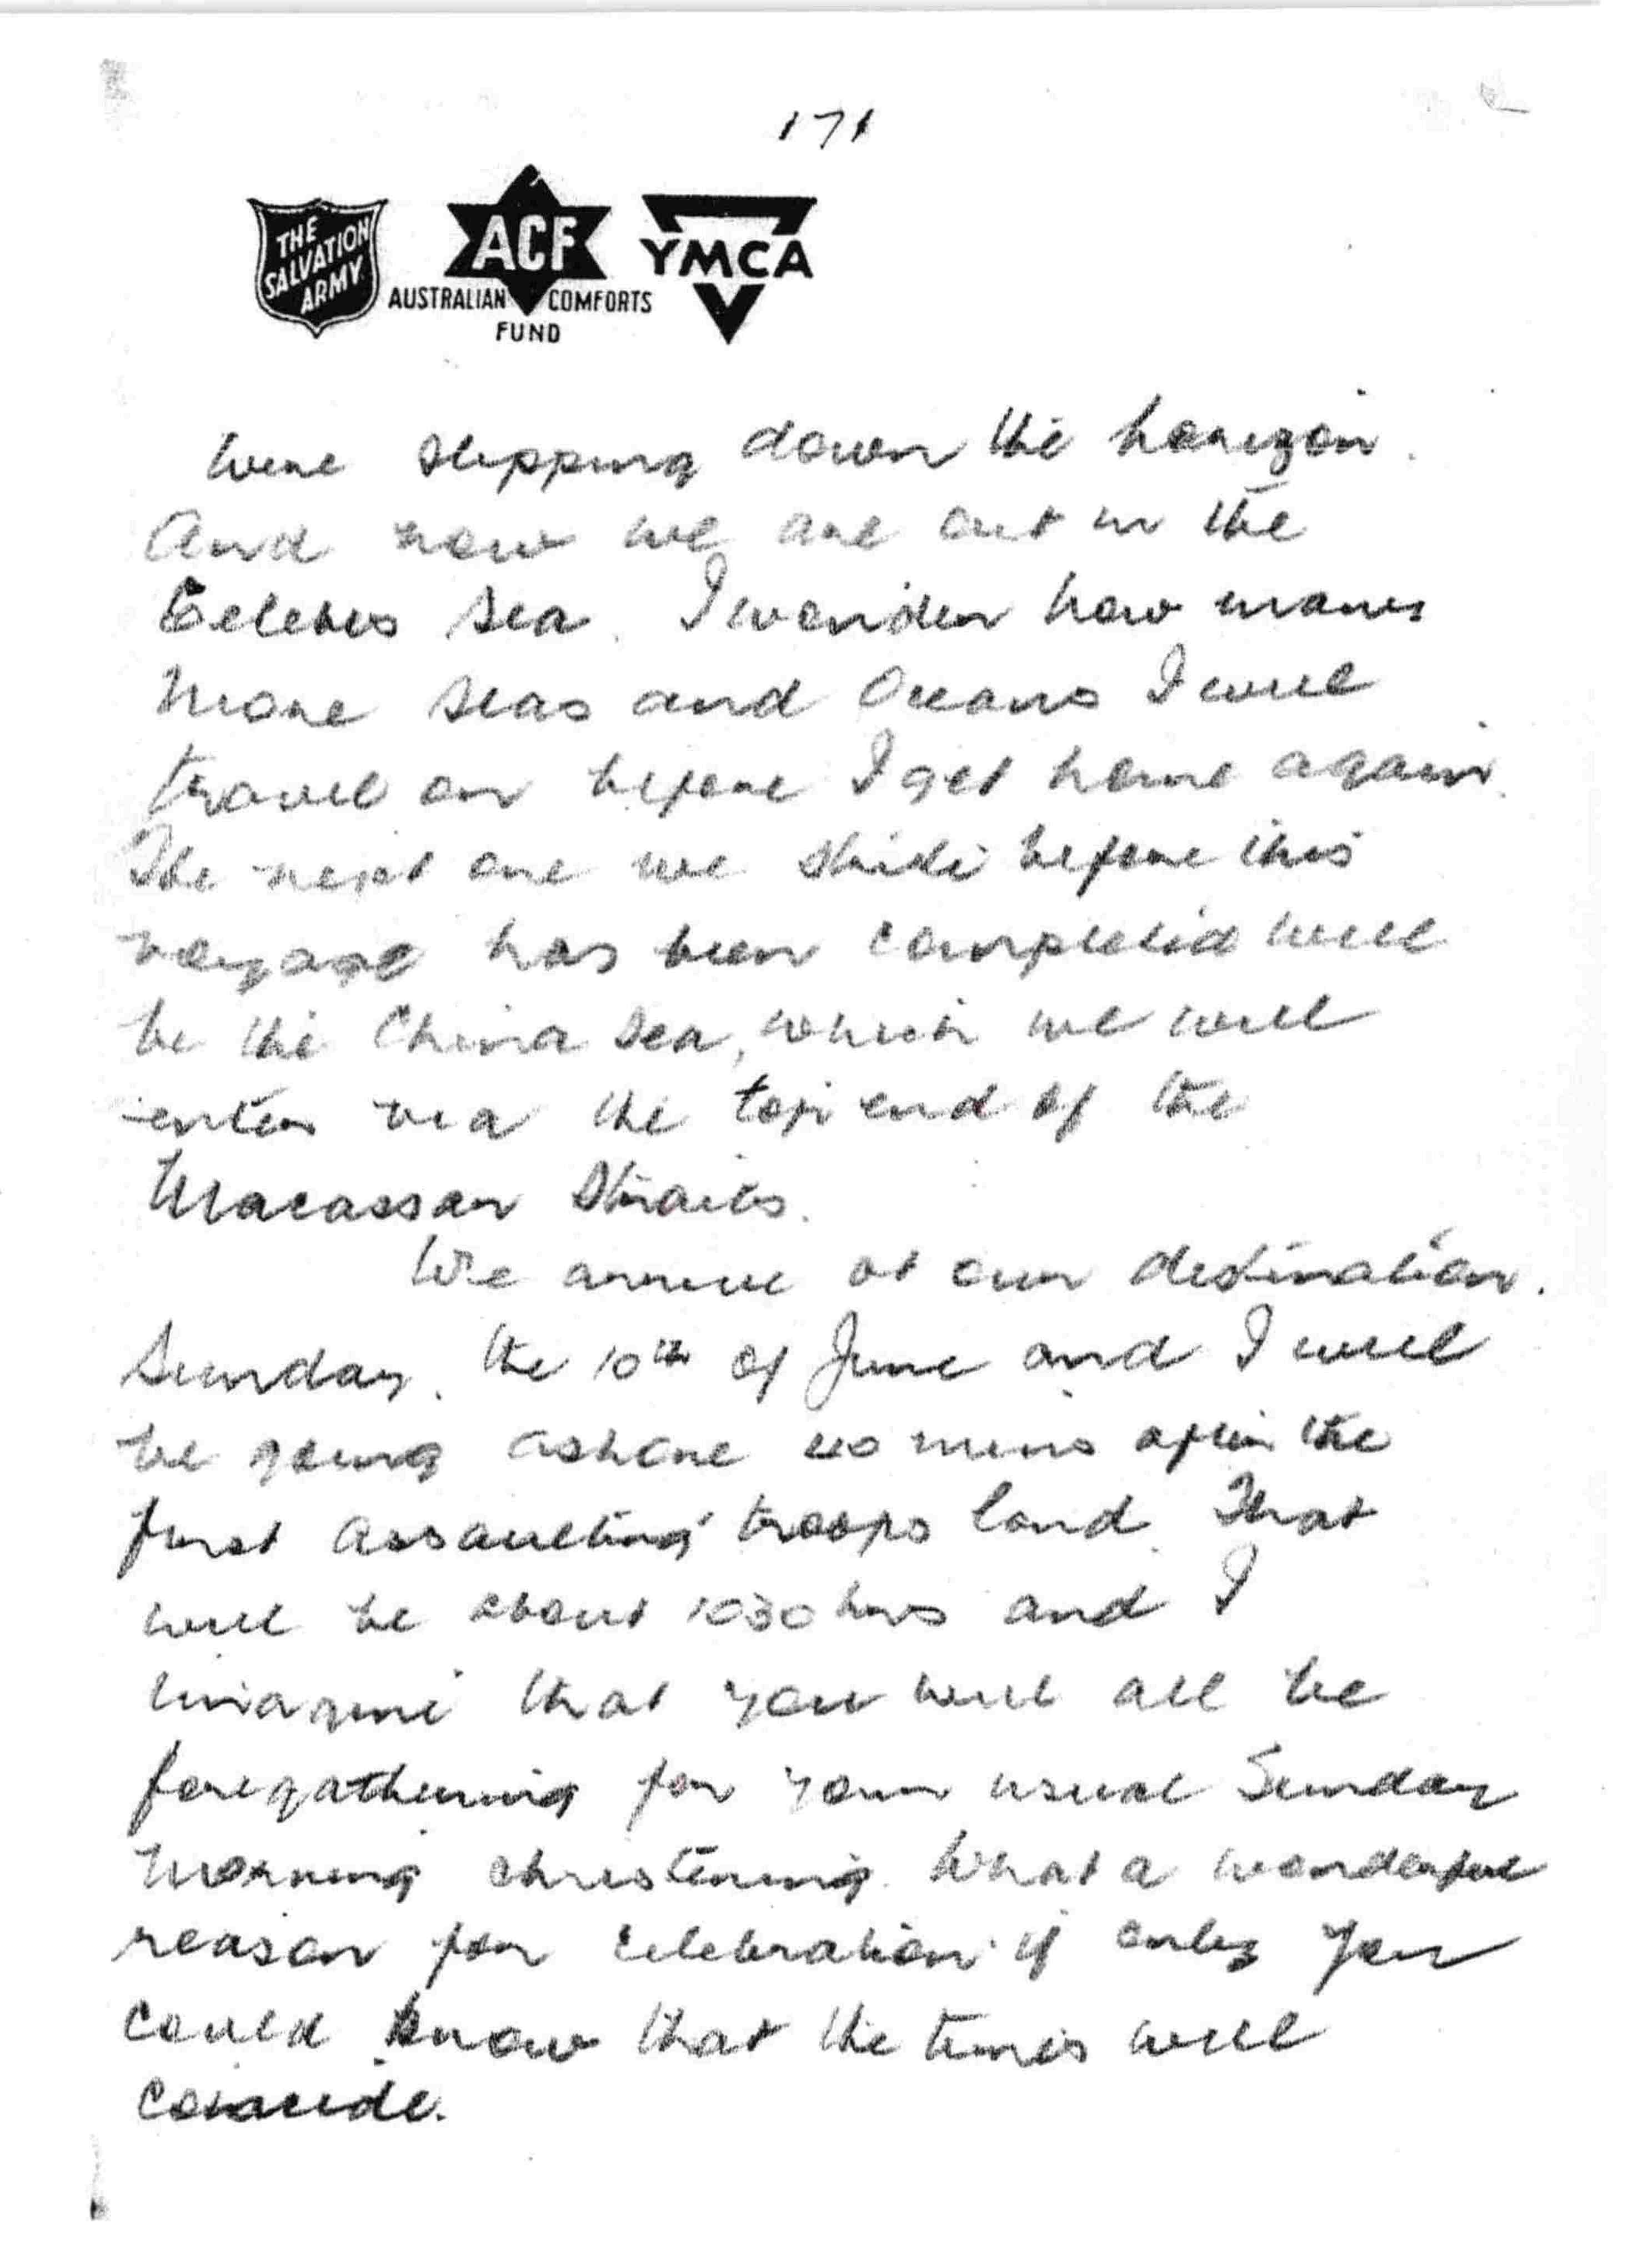 171
THE SALVATION ARMY
ACF
AUSTRALIAN COMFORTS FUND
YMCA
were slipping down the horizon.
And now we are out in the
Celebes Sea. I wonder how many
more seas and Oceans I will
travel on before I get home again.
The next one we strike before this
voyage has been completed will
be the China Sea, which we will
enter via the top end of the
Macassar Straits.
We arrive at our destination.
Sunday. the 10th of June and I will
be going ashore 40 mins after the
first assaulting troops land. That
will be about 1030 hrs and I
imagine that you will all be
foregathering for your usual Sunday
morning christening. What a wonderful
reason for celebration if only you
could know that the times will
coincide.